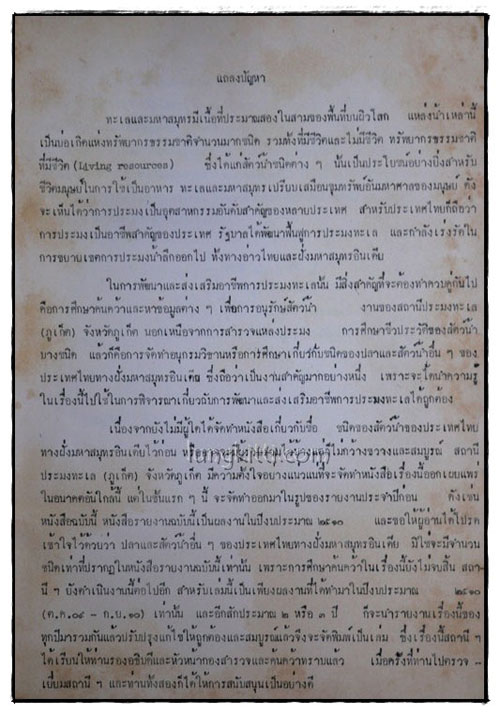 แถลงปัญหา
ทะเลและมหาสมุทรมีเนื้อที่ประมาณสองในสามของพื้นที่บนผิวโลก แหล่งน้ำเหล่านี้
เป็นบ่อเกิดแห่งทรัพยากรธรรมชาติจำนวนมากชนิด รวมทั้งที่มีชีวิตและไม่มีชีวิต ทรัพยากรธรรมชาติ
ที่มีชีวิต (Living resources) ซึ่งได้แก่สัตว์น้ำชนิดต่าง ๆ นั้นเป็นประโยชน์อย่างยิ่งสำหรับ
ชีวิตมนุษย์ในการใช้เป็นอาหาร ทะเลและมหาสมุทรเปรียบเสมือนขุมทรัพย์อันมหาศาลของมนุษย์ ดัง
จะเห็นได้ว่าการประมงเป็นอุตสาหกรรมอันดับสำคัญของหลายประเทศ สำหรับประเทศไทยก็ถือว่า
การประมงเป็นอาชีพสำคัญของประเทศ รัฐบาลได้พัฒนาฟื้นฟูการประมงทะเล และกำลังเร่งรัดใน
การขยายเขตการประมงน้ำลึกออกไป ทั้งทางอ่าวไทยและฝั่งมหาสมุทรอินเดีย
ในการพัฒนาและส่งเสริมอาชีพการประมงทะเลนั้น มีสิ่งสำคัญที่จะต้องทำควบคู่กันไป
คือการศึกษาค้นคว้าและหาข้อมูลต่าง ๆ เพื่อการอนุรักษ์สัตว์น้ำ งานของสถานีประมงทะเล
(ภูเก็ต) จังหวัดภูเก็ต นอกเหนือจากการสำรวจแหล่งประมง การศึกษาชีวประวัติของสัตว์น้ำ
บางชนิด แล้วก็คือการจัดทำอนุกรมวิธานหรือการศึกษาเกี่ยวกับชนิดของปลาและสัตว์น้ำอื่น ๆ ของ
ประเทศไทยทางฝั่งมหาสมุทรอินเดีย ซึ่งถือว่าเป็นงานสำคัญมากอย่างหนึ่ง เพราะจะได้นำความรู้
ในเรื่องนี้ไปใช้ในการพิจารณาเกี่ยวกับการพัฒนาและส่งเสริมอาชีพการประมงทะเลได้ถูกต้อง
เนื่องจากยังไม่มีผู้ใดได้จัดทำหนังสือเกี่ยวกับชื่อ ชนิดของสัตว์น้ำของประเทศไทย
ทางฝั่งมหาสมุทรอินเดียไว้ก่อน ไม่กว้างขวางและสมบูรณ์ สถานี
ประมงทะเล (ภูเก็ต) จังหวัดภูเก็ต มีความตั้งใจอย่างแน่วแน่ที่จะจัดทำหนังสือ เรื่องนี้ออกเผยแพร่
ในอนาคตอันใกล้นี้ แต่ในชั้นแรก ๆ นี้ จะจัดทำออกมาในรูปของรายงานประจำปีก่อน ดังเช่น
หนังสือฉบับนี้ หนังสือรายงานฉบับนี้เป็นผลงานในปีงบประมาณ ๒๕๑๐ และขอให้ผู้อ่านได้โปรด
เข้าใจไว้ด้วยว่า ปลาและสัตว์น้ำอื่น ๆ ของประเทศไทยทางฝั่งมหาสมุทรอินเดีย มิใช่จะมีจำนวน
ชนิดเท่าที่ปรากฏในหนังสือรายงานฉบับนี้เท่านั้น เพราะการศึกษาค้นคว้าในเรื่องนี้ยังไม่จบสิ้น สถา-
นี ๆ ยังดำเนินงานนี้ต่อไปอีก สำหรับเล่มนี้เป็นเพียงผลงานที่ได้ทำมาในปีงบประมาณ ๒๕๑๐
(ต.ค.๐๙ - ก.ย.๑๐) เท่านั้น และอีกสักประมาณ ๒ หรือ ๓ ปี ก็จะนำรายงานเรื่องนี้ของ
ทุกปีมารวมกันแล้วปรับปรุงแก้ไขให้ถูกต้องและสมบูรณ์แล้วจึงจะจัดพิมพ์เป็นเล่ม ซึ่งเรื่องนี้สถานี ๆ
ได้เรียนให้ท่านรองอธิบดีและหัวหน้ากองสำรวจและค้นคว้าทราบแล้ว เมื่อครั้งที่ท่านไปตรวจ -
เยี่ยมสถานี ๆ และท่านทั้งสองก็ได้ให้การสนับสนุนเป็นอย่างดี
lungkitti.com